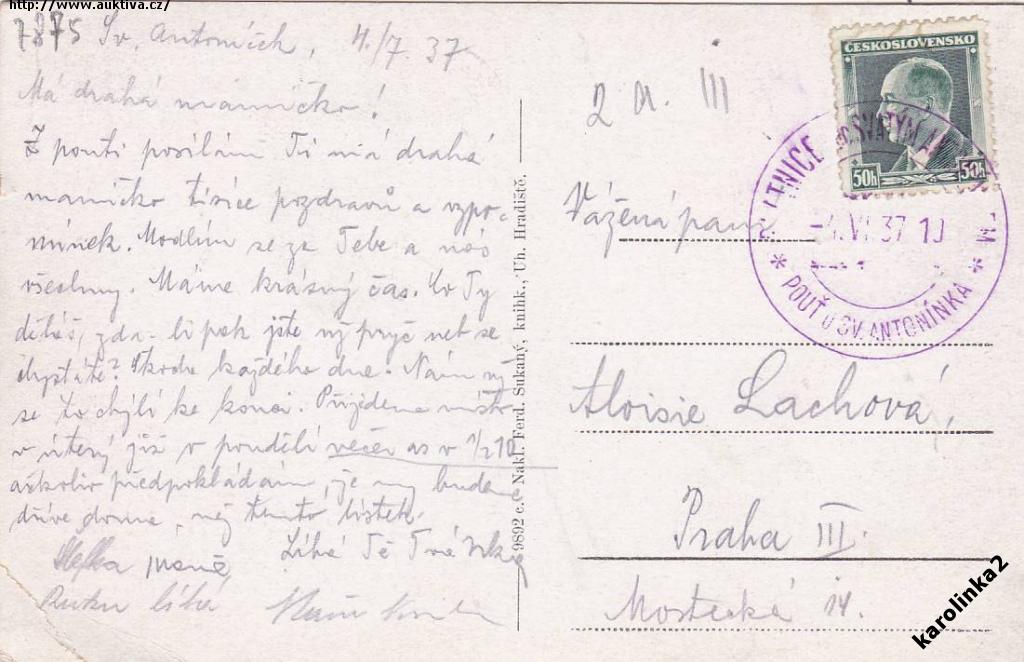 http://www.auktiva.cz/
7875 Sv. Antoníček, 4./7. 37
Má drahá mamičko!
Z pouti posílám Ti má drahá
mamičko tisíce pozdravů a vzpo-
mínek. Modlím se za Tebe a nás
všechny. Máme krásný čas. Co Ty
děláš, zda-li pak jste již pryč neb se
chystáte? Škoda každého dne. Nám již
se to chýlí ke konci. Přijedeme místo
v úterý již v pondělí večer as v 1/2 10
ačkoliv předpokládám, že my budeme
dříve doma, než tento lístek.
Líbá Tě Tvá
Ruku líbá
9892 c. Nakl. Ferd. Sukaný, knihk., Uh. Hradiště.
2 a. III
ČESKOSLOVENSKO
50h 50h
SVATÝM
VI. 37 10
* POUŤ U SV. ANTONÍNKA *
Vážená paní
Aloisie Lachová,
Praha III.
Mostecká 14.
karolinka2